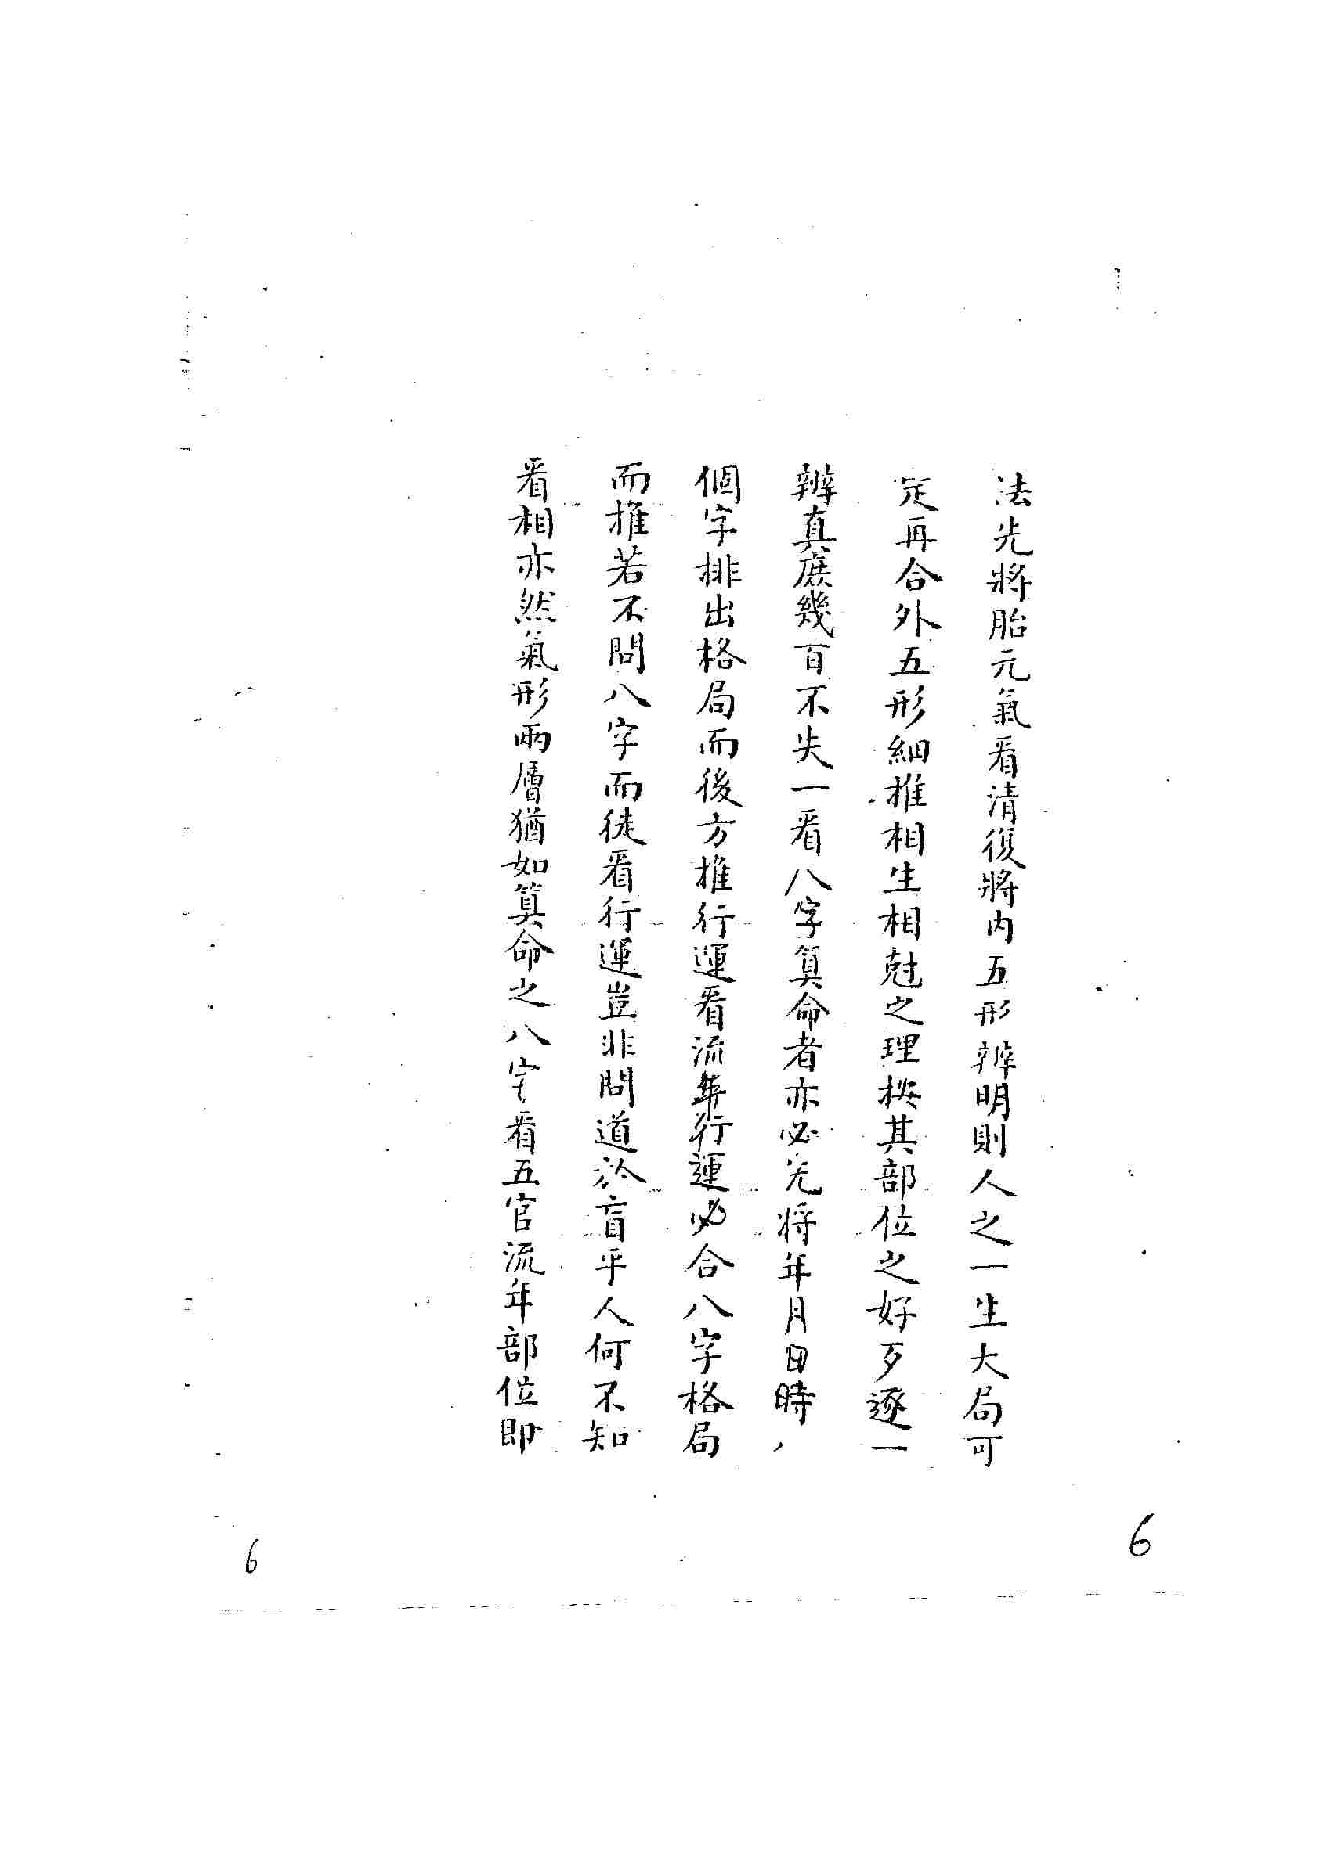 法先將胎元氣看清復將內五形辨明則人之一生大局可
定再合外五形細推相生相尅之理按其部位之好歹逐一
辨真庶幾百不失一看八字算命者亦必先將年月日時八
個字排出格局而後方推行運看流年行運必合八字格局
而推若不問八字而徒看行運豈非問道於盲乎人何不知
看相亦然氣形兩層猶如算命之八字看五官流年部位即
6
6